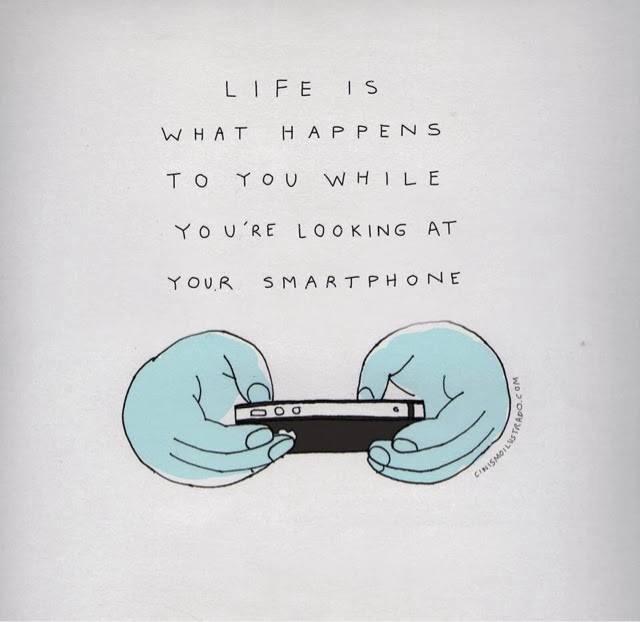 LIFE IS
WHAT HAPPENS
TO YOU WHILE
YOU'RE LOOKING AT
YOUR SMARTPHONE
CINISMOILUSTRADO.COM